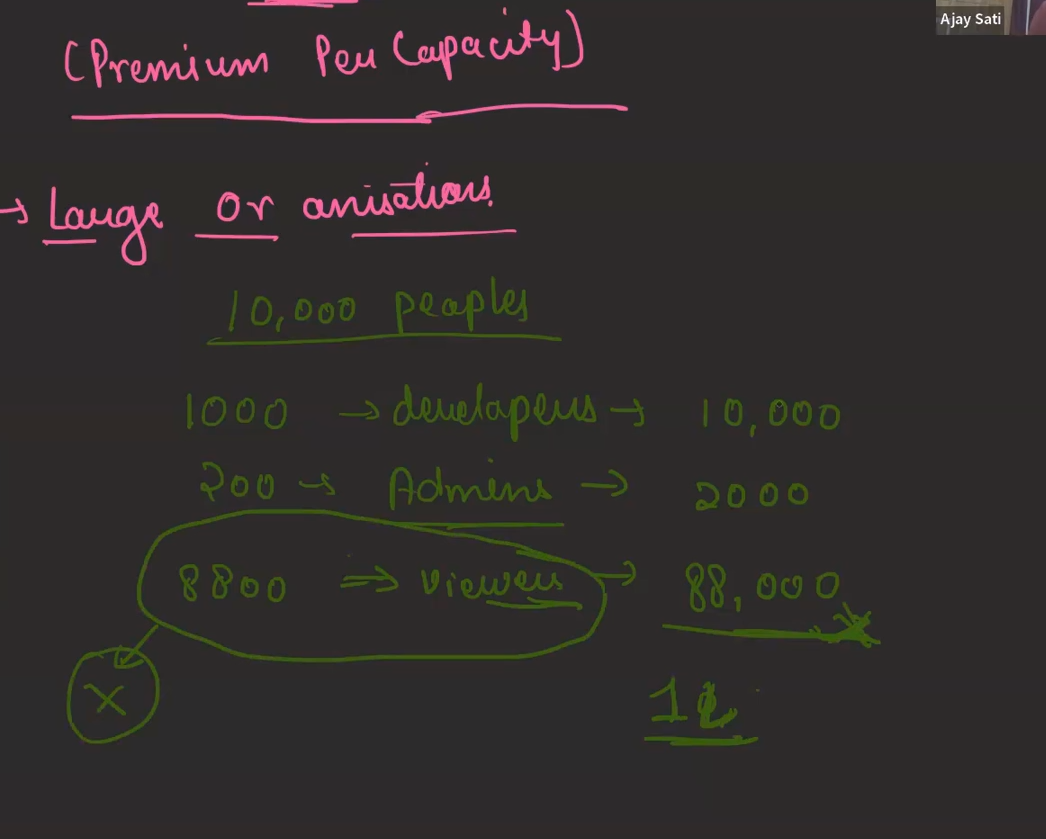 Ajay Sati
(Premium Per Capacity)
→ Large Or anisations.
10,000 peoples
1000 → developers → 10,000
200 → Admins → 2000
8800 ⇒ viewers → 88,000
X
1L